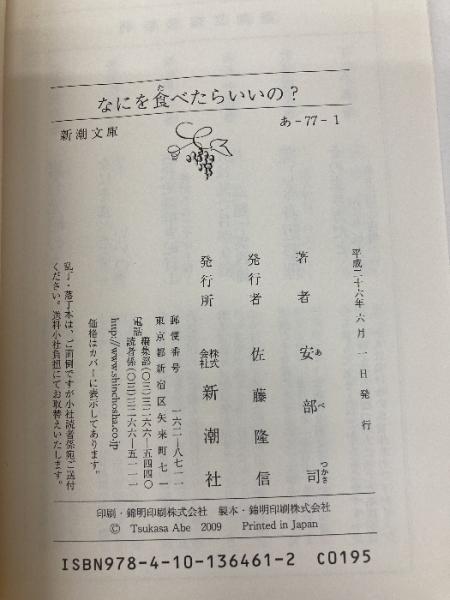 なにを食べたらいいの？
新潮文庫
あ-77-1
平成二十六年六月一日発行
著者 安部司
発行者 佐藤隆信
発行所 株式会社 新潮社
郵便番号 一六二-八七一一
東京都新宿区矢来町七一
電話 編集部(〇三)三二六六-五四四〇
読者係(〇三)三二六六-五一一一
http://www.shinchosha.co.jp
価格はカバーに表示してあります。
乱丁・落丁本は、ご面倒ですが小社読者係宛ご送付
ください。送料小社負担にてお取替えいたします。
印刷・錦明印刷株式会社 製本・錦明印刷株式会社
© Tsukasa Abe 2009 Printed in Japan
ISBN978-4-10-136461-2 C0195